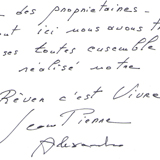 des propriétaires.
ici nous avons t
ses toutes ensemble
réalisé notre
Rêver c'est Vivre
Jean Pierre
Alexandra